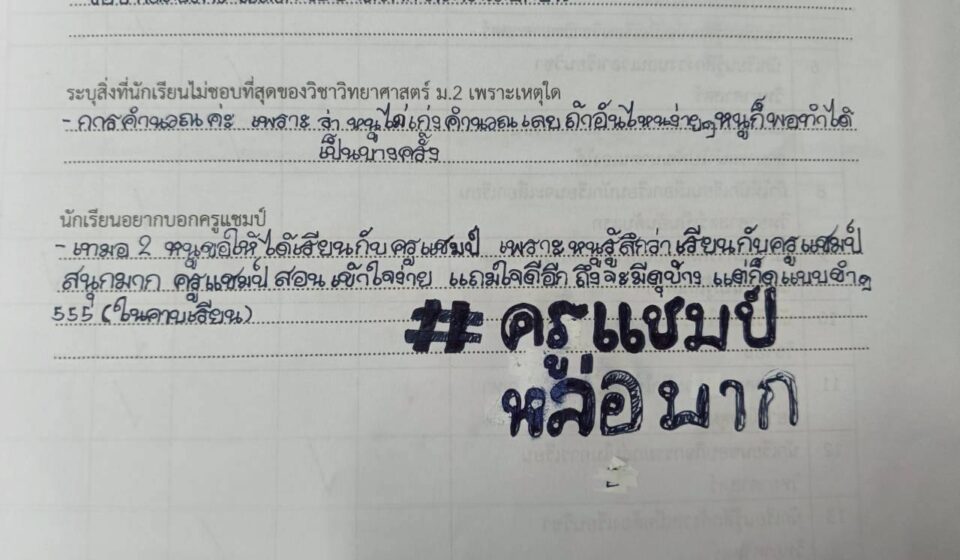 ระบุสิ่งที่นักเรียนไม่ชอบที่สุดของวิชาวิทยาศาสตร์ ม.2 เพราะเหตุใด
- การคำนวณค่ะ เพราะ ว่า หนูไม่เก่งคำนวณเลย ถ้าอันไหนง่ายๆหนูก็พอทำได้
เป็นบางครั้ง
นักเรียนอยากบอกครูแชมป์
- เทมอ 2 หนูขอให้ได้เรียนกับครูแชมป์ เพราะหนูรู้สึกว่าเรียนกับครูแชมป์
สนุกมาก ครูแชมป์สอนเข้าใจง่าย แถมใจดีอีก ถึงจะมีดุบ้าง แต่ก็ดุแบบขำๆ
555 (ในคาบเรียน)
# ครูแชมป์
หล่อมาก